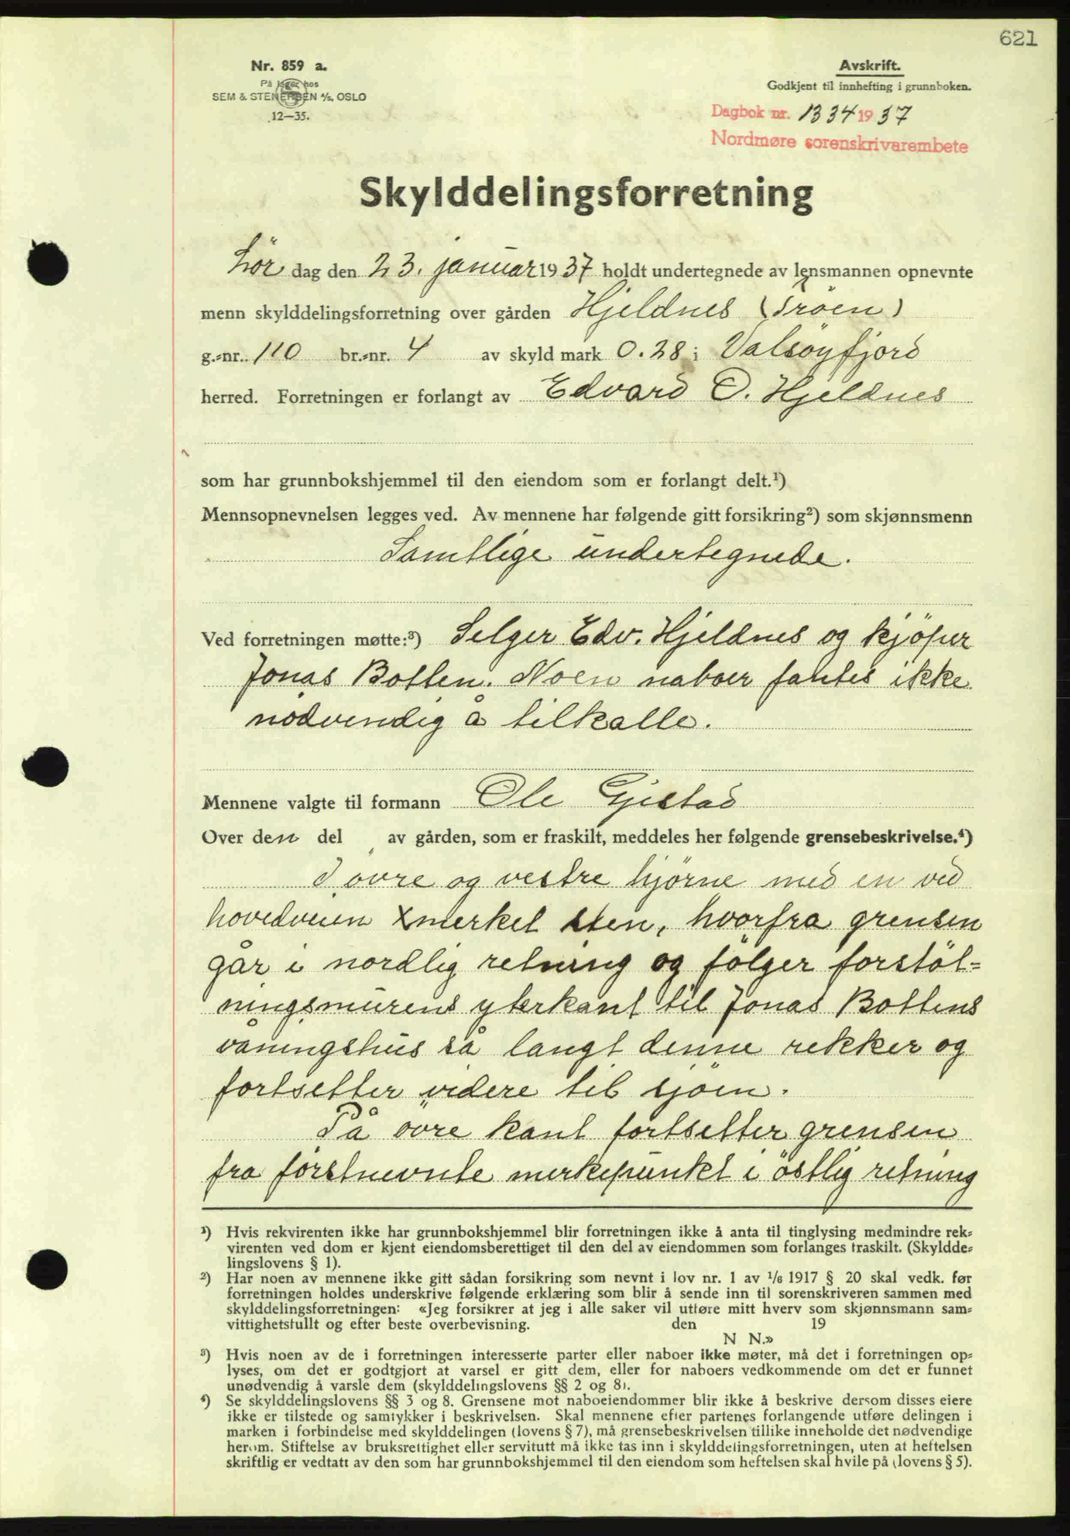 621
Nr. 859 a.
På lager hos
SEM & STENERSEN A/S, OSLO
12—35.
Avskrift.
Godkjent til innhefting i grunnboken.
Dagbok nr. 1334 1937
Nordmøre sorenskriverembete
Skylddelingsforretning
Lör dag den 23. januar 1937 holdt undertegnede av lensmannen opnevnte
menn skylddelingsforretning over gården Hjeldnes (Tröen)
g.-nr. 110 br.-nr. 4 av skyld mark 0.28 i Valsöyfjord
herred. Forretningen er forlangt av Edvard O. Hjeldnes
som har grunnbokshjemmel til den eiendom som er forlangt delt.¹)
Mennsopnevnelsen legges ved. Av mennene har følgende gitt forsikring²) som skjønnsmenn
Samtlige undertegnede.
Ved forretningen møtte:³) Selger Edv. Hjeldnes og kjöper
Jonas Botten. Noen naboer fantes ikke
nödvendig å tilkalle.
Mennene valgte til formann Ole Gjestad
Over den del av gården, som er fraskilt, meddeles her følgende grensebeskrivelse.⁴)
I övre og vestre hjörne med en ved
hovedveien xmerket sten, hvorfra grensen
går i nordlig retning og fölger forstöt=
ningsmurens yterkant til Jonas Bottens
våningshus så langt denne rekker og
fortsetter videre til sjöen.
På övre kant fortsetter grensen
fra förstnevnte merkepunkt i östlig retning
¹) Hvis rekvirenten ikke har grunnbokshjemmel blir forretningen ikke å anta til tinglysing medmindre rek-
virenten ved dom er kjent eiendomsberettiget til den del av eiendommen som forlanges fraskilt. (Skyldde-
lingslovens § 1).
²) Har noen av mennene ikke gitt sådan forsikring som nevnt i lov nr. 1 av 1/6 1917 § 20 skal vedk. før
forretningen holdes underskrive følgende erklæring som blir å sende inn til sorenskriveren sammen med
skylddelingsforretningen: «Jeg forsikrer at jeg i alle saker vil utføre mitt hverv som skjønnsmann sam-
vittighetsfullt og efter beste overbevisning. den 19
N N.»
³) Hvis noen av de i forretningen interesserte parter eller naboer ikke møter, må det i forretningen op-
lyses, om det er godtgjort at varsel er gitt dem, eller for naboers vedkommende om det er funnet
unødvendig å varsle dem (skylddelingslovens §§ 2 og 8).
⁴) Se skylddelingslovens §§ 3 og 8. Grensene mot naboeiendommer blir ikke å beskrive dersom disses eiere
ikke er tilstede og samtykker i beskrivelsen. Skal mennene efter partenes forlangende utføre delingen i
marken i forbindelse med skylddelingen (lovens § 7), må grensebeskrivelsen tillike inneholde det nødvendige
herom. Stiftelse av bruksrettighet eller servitutt må ikke tas inn i skylddelingsforretningen, uten at heftelsen
skriftlig er vedtatt av den som har grunnbokshjemmel til den eiendom som heftelsen skal hvile på (lovens § 5).